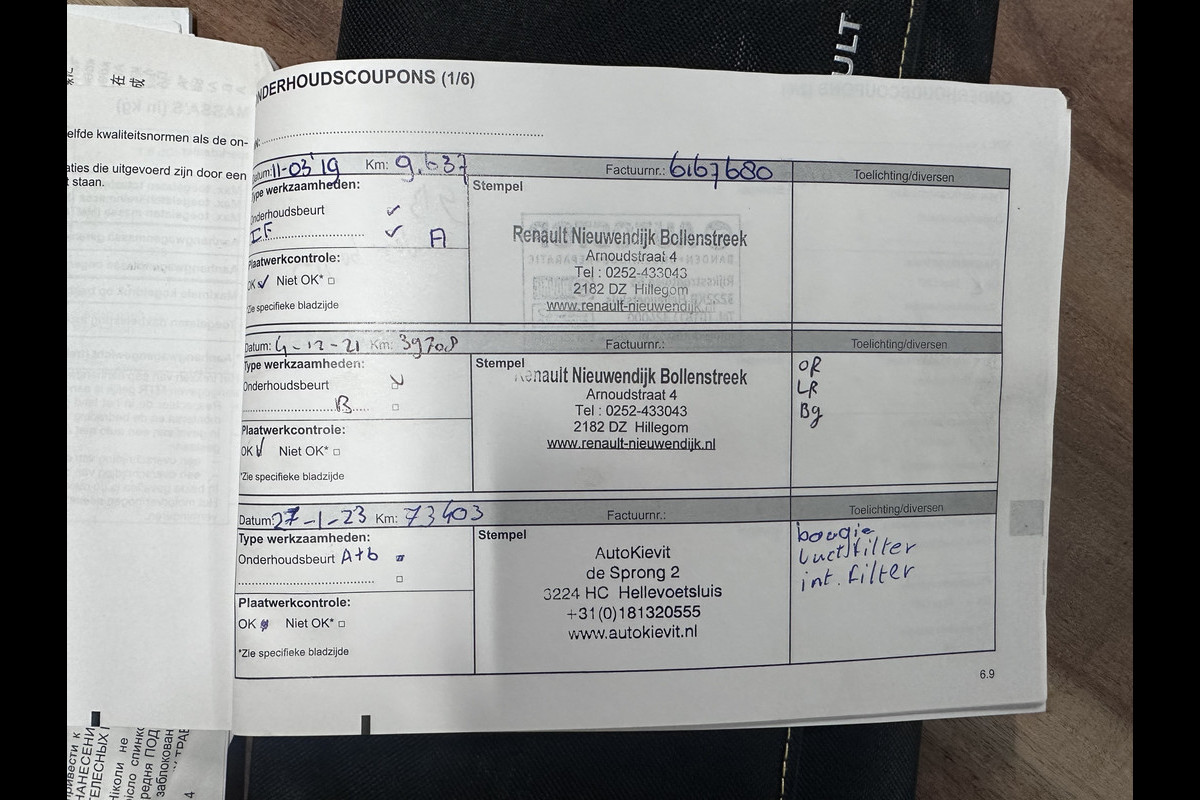 ULT
在
成
elfde kwaliteitsnormen als de on-
aties die uitgevoerd zijn door een
t staan.
NDERHOUDSCOUPONS (1/6)
Datum: 11-03'19 Km: 9.637 Factuurnr.: 6167680 Toelichting/diversen
Type werkzaamheden:
Onderhoudsbeurt ✓
IF ✓ A
Plaatwerkcontrole:
OK ✓ Niet OK* □
*Zie specifieke bladzijde
Stempel
Renault Nieuwendijk Bollenstreek
Arnoudstraat 4
Tel : 0252-433043
2182 DZ Hillegom
www.renault-nieuwendijk.nl
Datum: 4-12-21 Km: 39708 Factuurnr.: Toelichting/diversen
Type werkzaamheden:
Onderhoudsbeurt
B
Plaatwerkcontrole:
OK Niet OK* □
*Zie specifieke bladzijde
Stempel
Renault Nieuwendijk Bollenstreek
Arnoudstraat 4
Tel : 0252-433043
2182 DZ Hillegom
www.renault-nieuwendijk.nl
OR
LR
Bg
Datum: 27-1-23 Km: 73403 Factuurnr.: Toelichting/diversen
Type werkzaamheden:
Onderhoudsbeurt A+b
Plaatwerkcontrole:
OK Niet OK* □
*Zie specifieke bladzijde
Stempel
AutoKievit
de Sprong 2
3224 HC Hellevoetsluis
+31(0)181320555
www.autokievit.nl
bougie
luctfilter
int. filter
6.9
привести к
НАНЕСЕНИ
ТЕЛЕСНЫХ
Ніколи не
крісло спинко
редня ПОД
заблокован